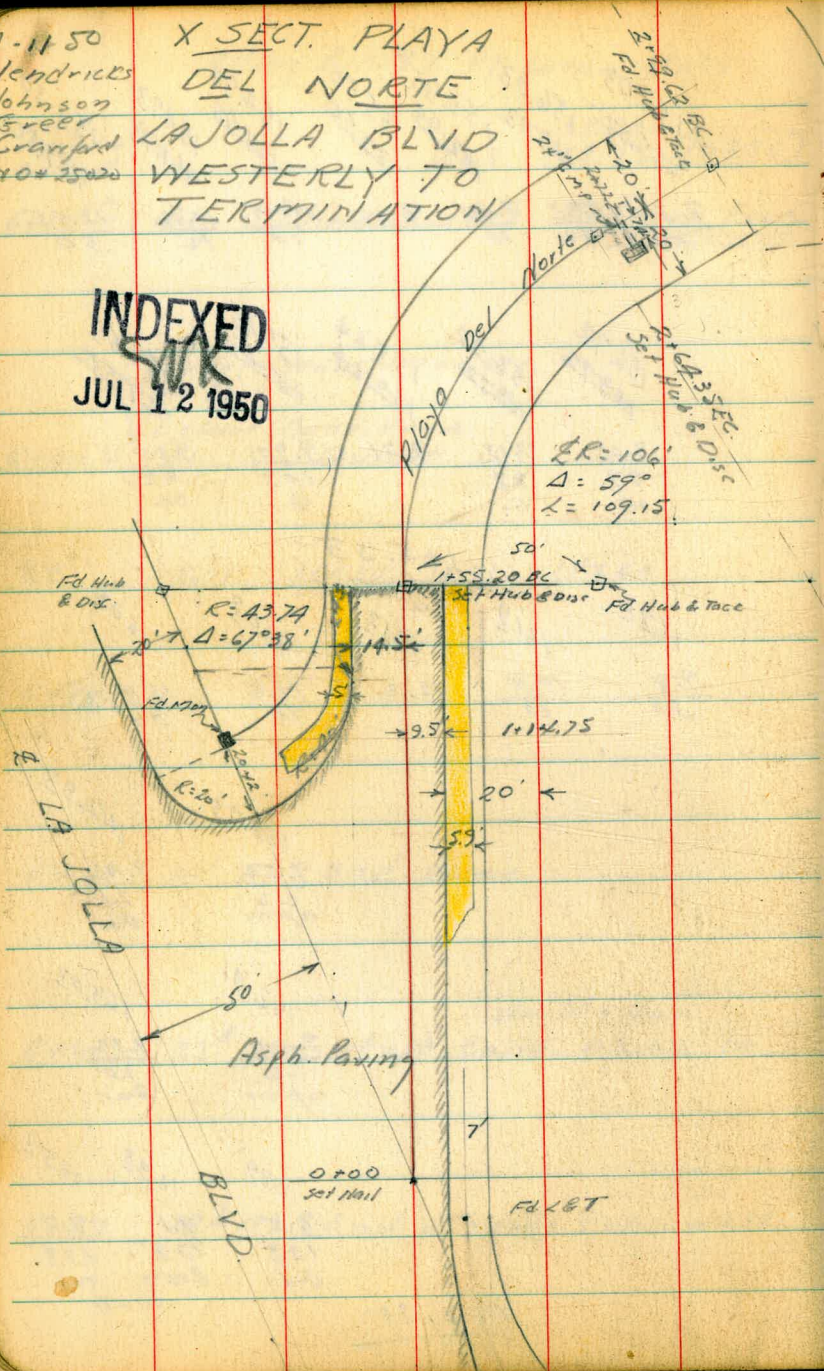 -11-50
Hendricks
Johnson
Greer
Crawford
W O # 25020
X SECT. PLAYA
DEL NORTE
LA JOLLA BLVD
WESTERLY TO
TERMINATION
INDEXED
JUL 12 1950
2+99.62 BC
Fd Hub & Tack
20'
20
Playa Del Norte
2+64.35 EC
Set Hub & Disc
℄ R= 106'
Δ = 59°
L= 109.15
50'
1+55.20 BC
Set Hub & Disc
Fd Hub & Tack
Fd Hub
& Disc
R= 43.74
Δ = 67°38'
20'
14.5'
5'
Fd Mon
9.5'
1+14.75
20.42
R=20'
20'
5.9'
℄ LA JOLLA BLVD.
50'
Asph. Paving
7'
0+00
Set Nail
Fd L&T